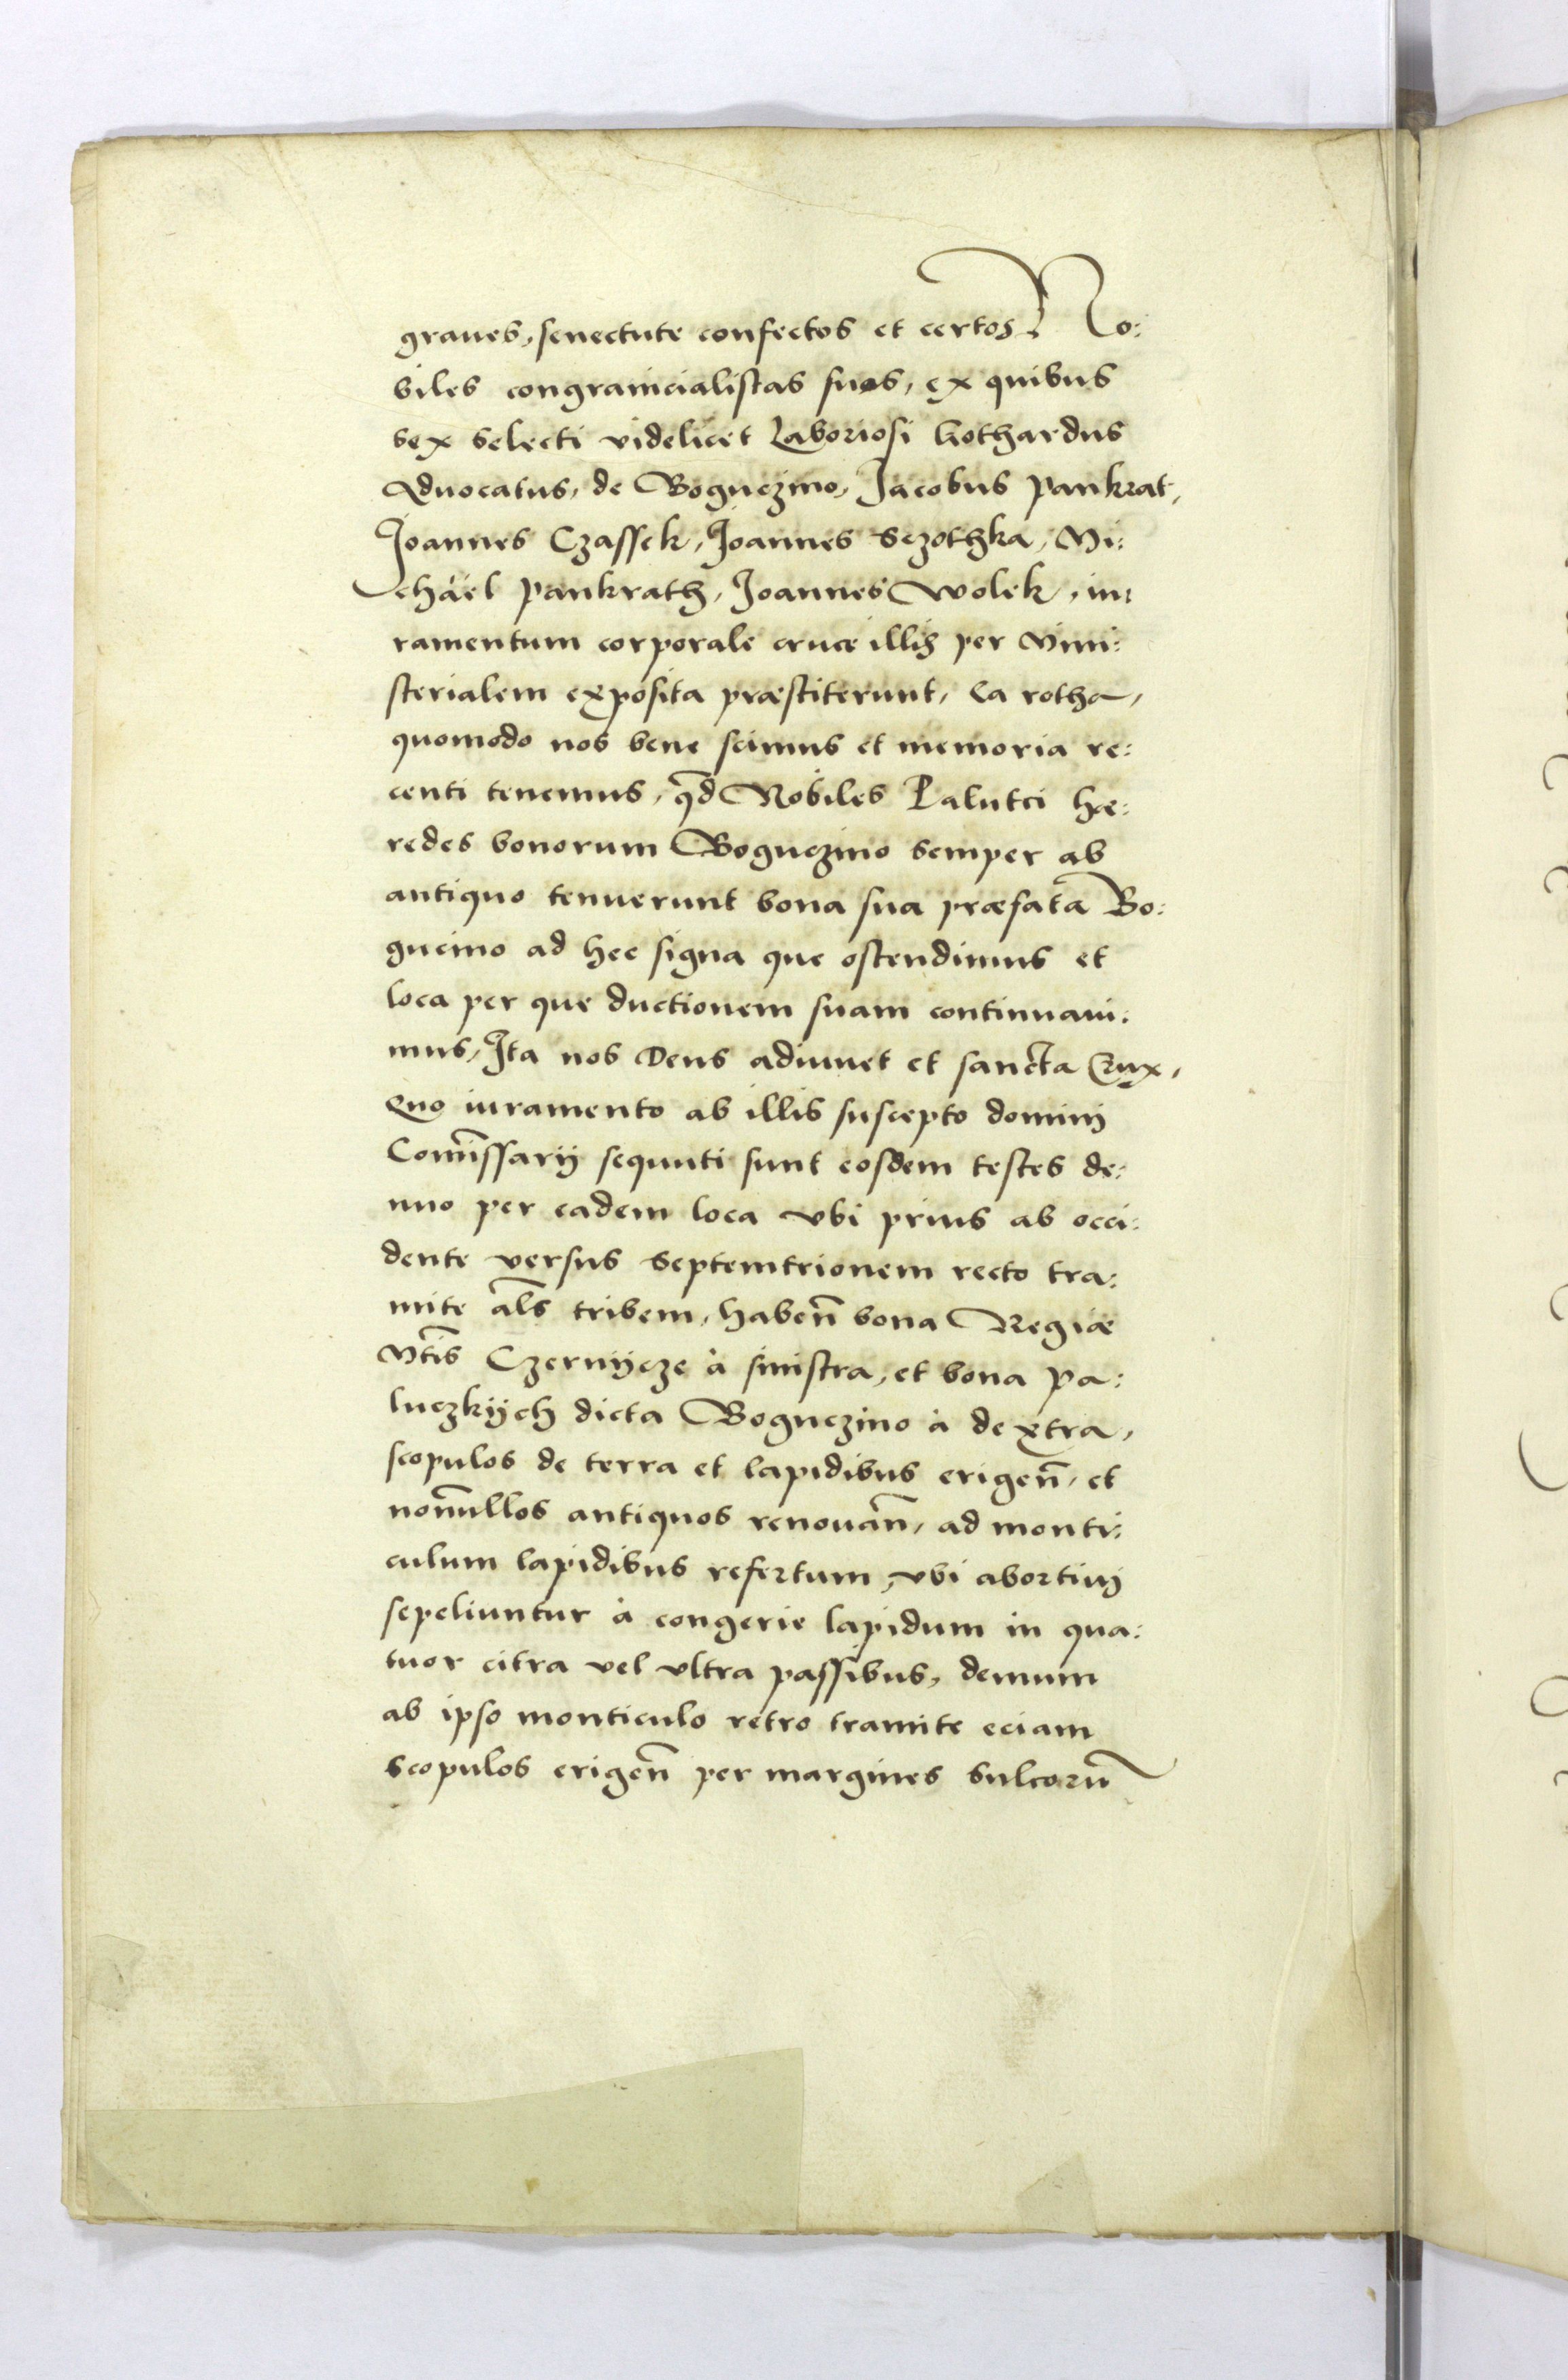 graues, senectute confectos et certos No:
biles congranicialistas suos, ex quibus
sex selecti videlicet Laboriosi Gothardus
Aduocatus, de Boguczino, Jacobus Pankrat,
Joannes Czassek, Joannes Sczothka, Mi:
chäel Pankrath, Joannes Wolek, iu:
ramentum corporale cruce illis per Mini:
sterialem exposita præstiterunt, Ea rotha,
quomodo nos bene scimus et memoria re:
centi tenemus, qd Nobiles Palutci hæ:
redes bonorum Boguczino semper ab
antiquo tenuerunt bona sua præfata Bo:
gucino ad hec signa que ostendimus et
loca per que ductionem suam continuaui:
mus, Ita nos Deus adiuuet et sancta Crux,
Quo iuramento ab illis suscepto domini
Comissarij sequuti sunt eosdem testes de:
nuo per eadem loca vbi prius ab occi:
dente versus septemtrionem recto tra:
mite als tribem, haben bona Regiæ
Mtis Czernijcze à sinistra, et bona Pa:
luczkijch dicta Boguczino à dextra,
scopulos de terra et lapidibus erigen, et
nonullos antiquos renouan, ad monti:
culum lapidibus refertum, vbi abortiuj
sepeliuntur à congerie lapidum in qua:
tuor citra vel vltra passibus, demum
ab ipso monticulo retro tramite eciam
scopulos erigen per margines sulcorū